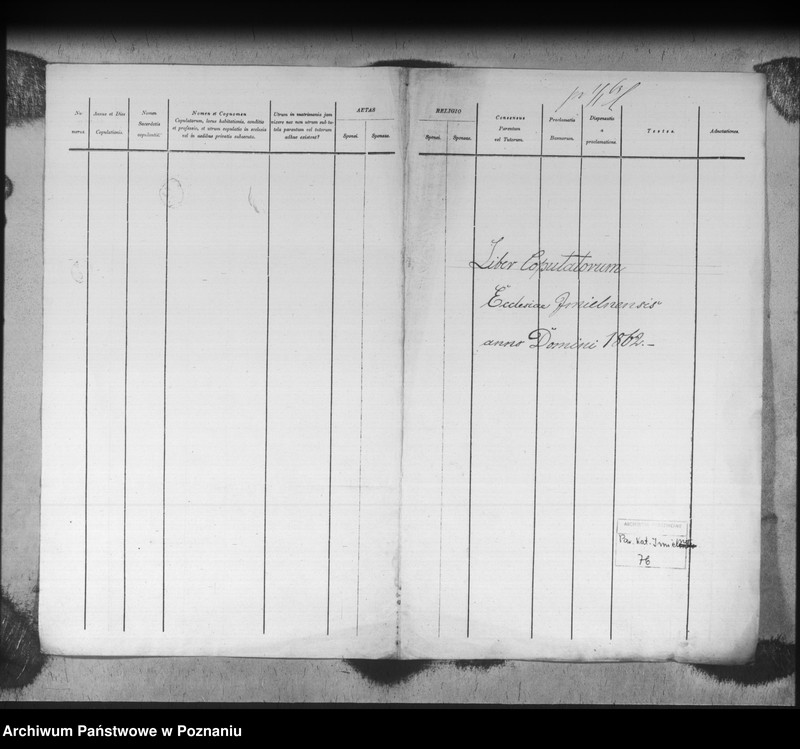 Nu-
merus
Annus et Dies
Copulationis.
Nomen
Sacerdotis
copulantis.
Nomen et Cognomen
Copulatorum, locus habitationis, conditio
et professio, et utrum copulatio in ecclesia
vel in aedibus privatis celebrata.
Utrum in matrimonio jam
vixere nec non utrum sub tu-
tela parentum vel tutorum
adhuc existere?
AETAS
Sponsi.
Sponsae.
RELIGIO
Sponsi.
Sponsae.
Consensus
Parentum
vel Tutorum.
Proclamatio
Bannorum.
Dispensatio
a
proclamatione.
Testes.
Adnotationes.
Liber Copulatorum
Ecclesiae Imielnensis
anno Domini 1862.–
Par. Kat.
76
Archiwum Państwowe w Poznaniu